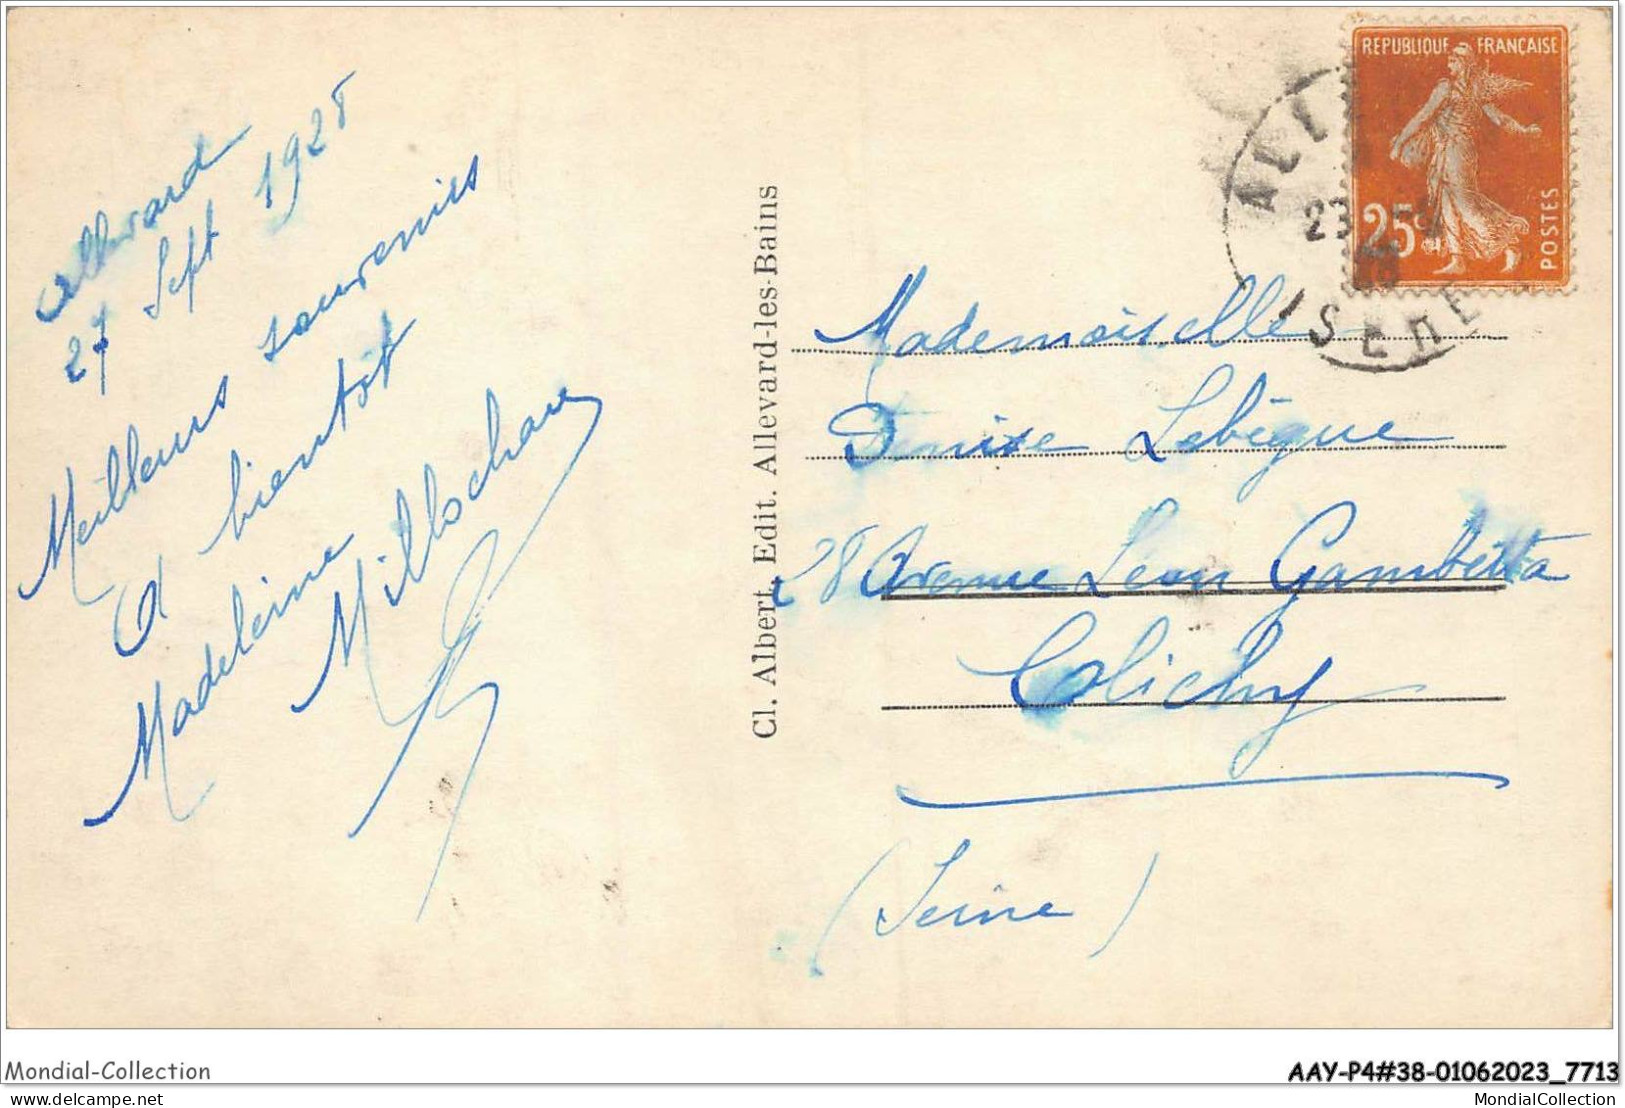 Allevard
27 Sept 1928
Meilleurs souvenirs
A bientôt
Madeleine
Cl. Albert, Edit. Allevard-les-Bains
REPUBLIQUE FRANÇAISE
25c
POSTES
ALL
23
ISERE
Mademoiselle
Denise Lebègue
28 Avenue Léon Gambetta
Clichy
(Seine)
Mondial-Collection
AAY-P4#38-01062023_7713
delcampe.net
MondialCollection